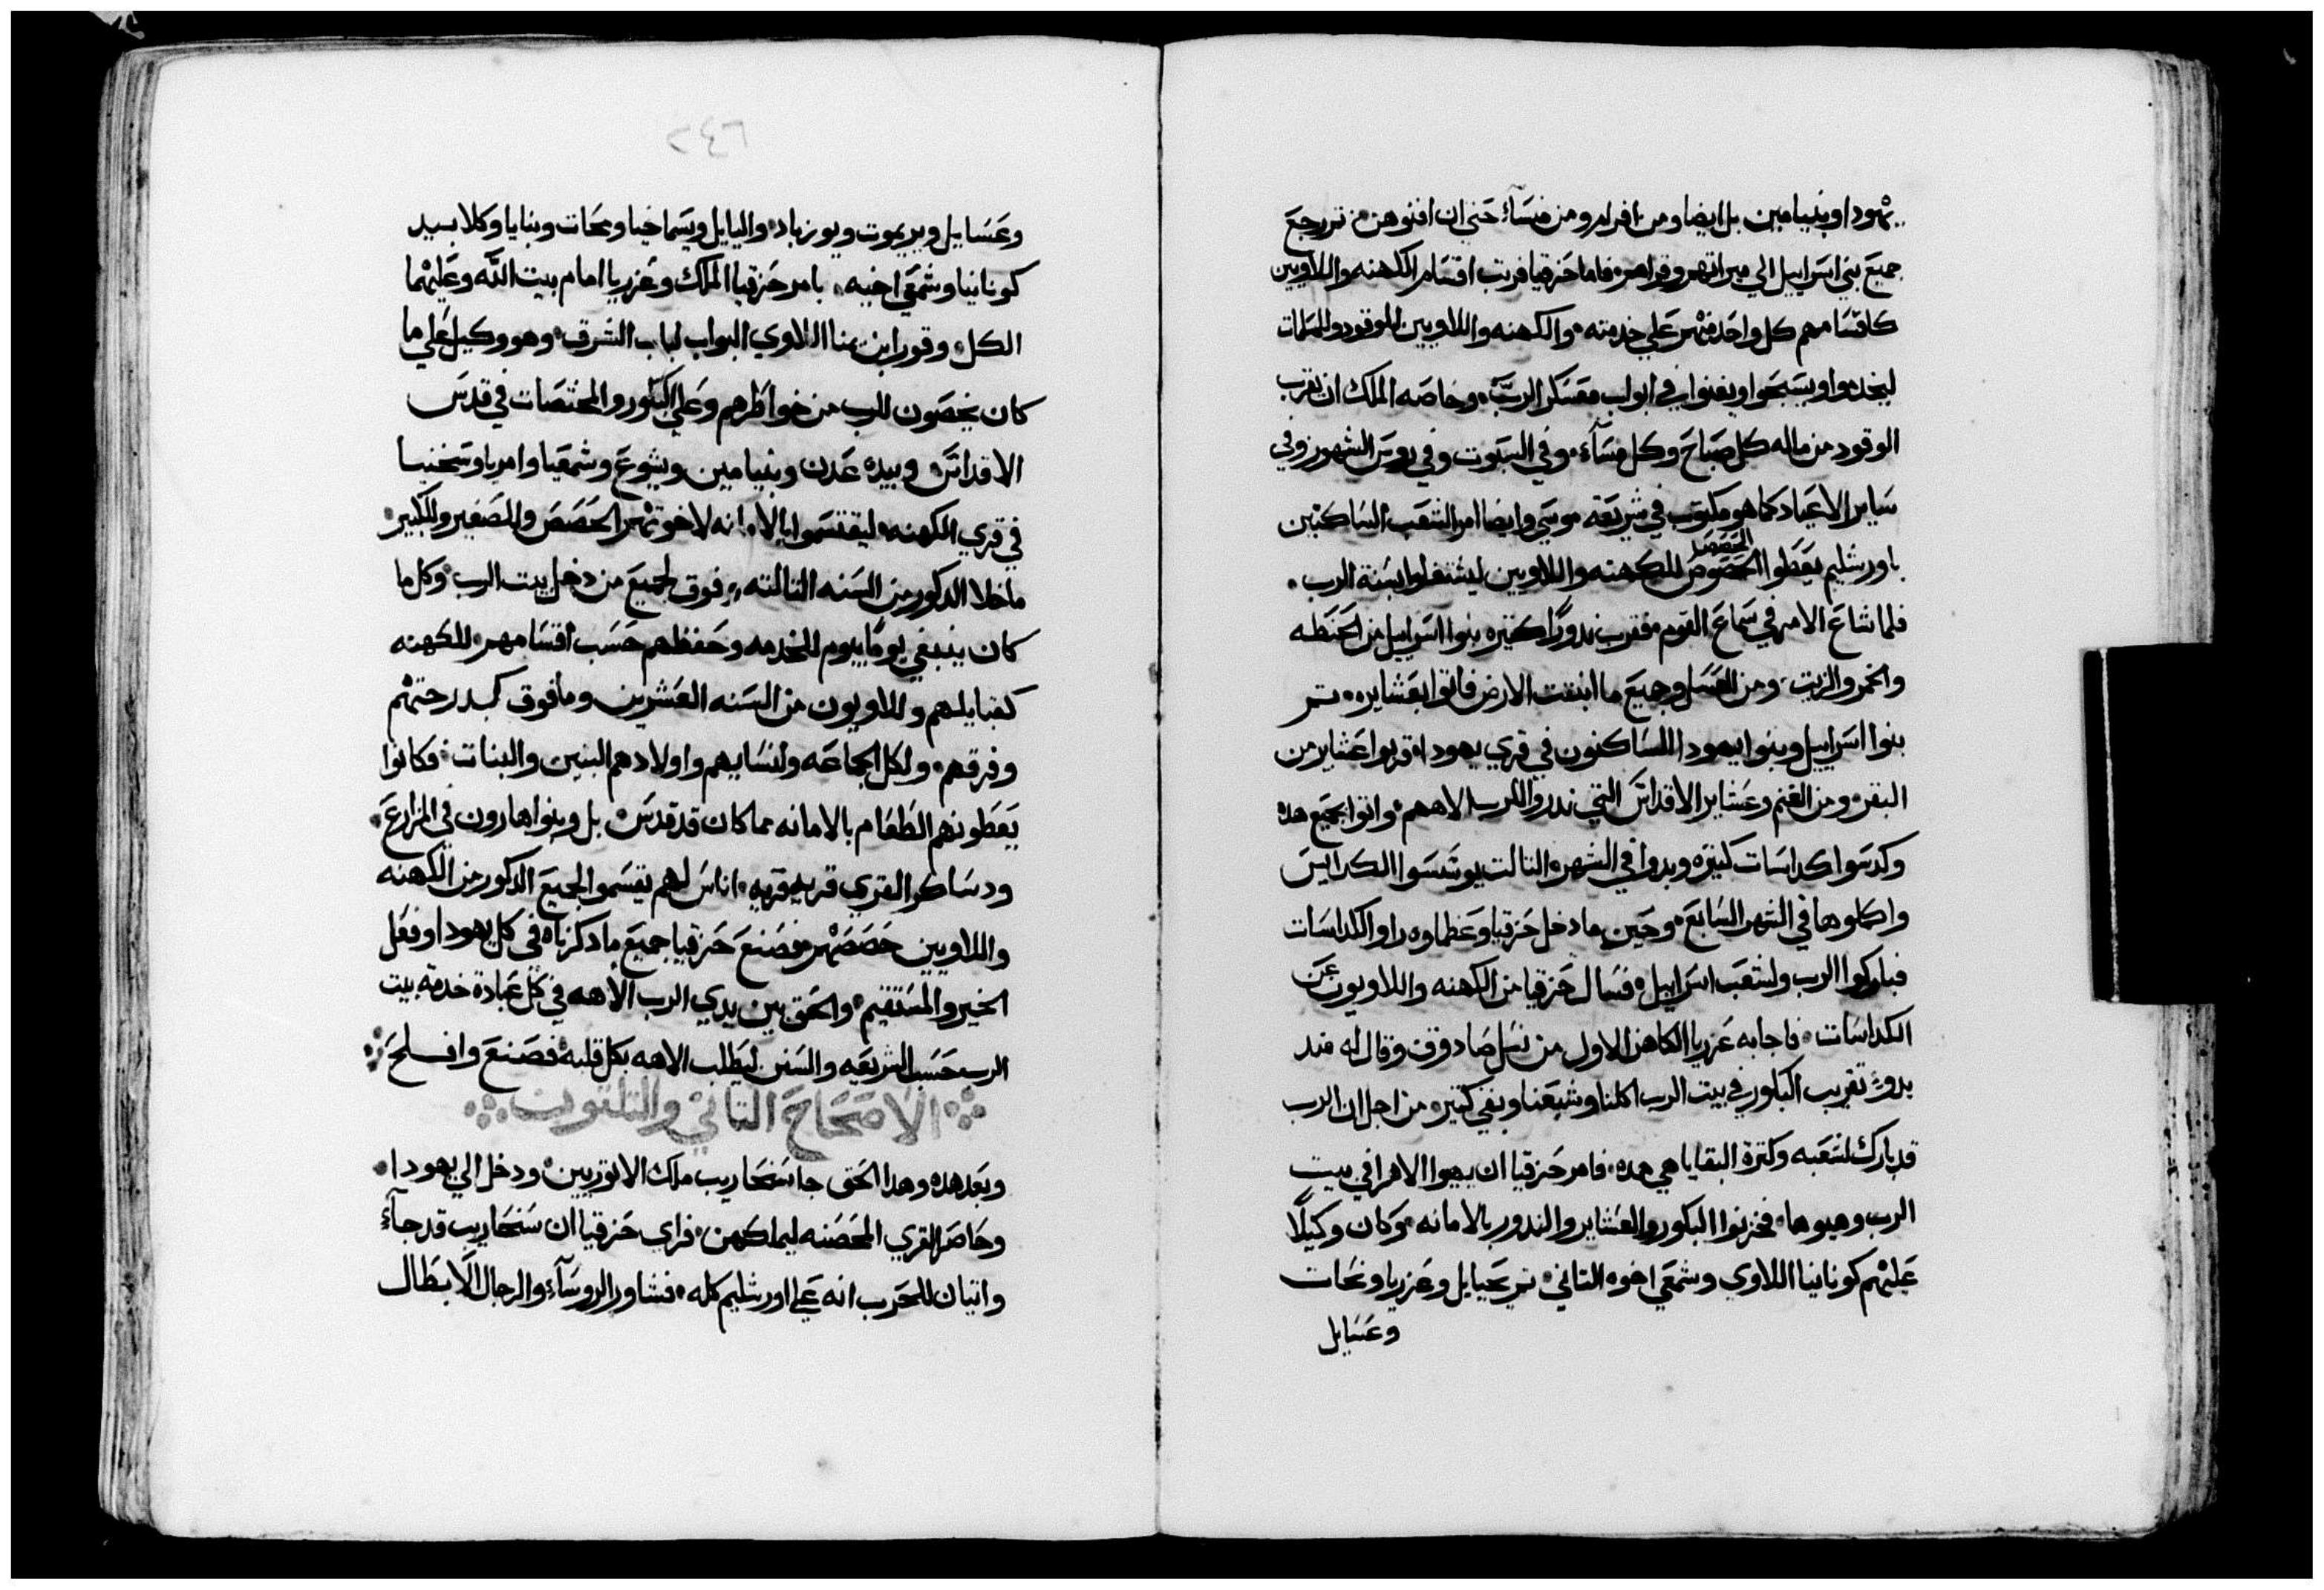 يهودا وبنيامين بل ايضا ومن افرام ومن منسآء حتي ان افنوهن تم رجع
جميع بني اسراييل الي ميراتهم وقراهم فاما حزقيا فرتب اقسام الكهنه واللاويين
كاقسامهم كل واحد منهم علي خدمته والكهنه واللاويين للوقود وللسلمات
ليخدموا ويسبحوا ويغنوا في ابواب معسكر الرب وخاصه الملك ان تقرب
الوقود من ماله كل صباح وكل مسآء وفي السبوت وفي روس الشهور وفي
ساير الاعياد كما هو مكتوب في شريعة موسي وايضا امر الشعب الساكنين
باورشليم يعطوا الحصوص الحصص للكهنه واللاويين ليشتغلوا بسنة الرب
فلما شاع الامر في سماع القوم فقرب ندورًا كتيره بنوا اسراييل من الحنطه
والخمر والزيت ومن العسل وجميع ما انبتت الارض فاتوا بعشايره تم
بنوا اسراييل وبنوا يهودا الساكنون في قري يهودا قربوا عشاير من
البقر ومن الغنم وعشاير الاقداس التي ندروا للرب الاههم واتوا بجميع هده
وكدسوا كداسات كتيره وبدوا في الشهر التالت يوسسوا الكداديس
واكملوها في الشهر السابع وحين ما دخل حزقيا وعظماوه راوا الكداسات
فباركوا الرب ولشعب اسراييل فسال حزقيا من الكهنه واللاويون عن
الكداسات فاجابه عزريا الكاهن الاول من نسل صادوق وقال له مند
بدوء تقريب البكور في بيت الرب اكلنا وشبعنا وبقي كتير من اجل ان الرب
قد بارك لشعبه وكترة البقايا هي هده فامر حزقيا ان يهيوا الاهرا في بيت
الرب وهيوها فخزنوا البكور والعشاير والندور بالامانه وكان وكيلًا
عليهم كونانيا اللاوي وشمعي اخوه التاني تم يحيايل وعزريا ونحات
وعسايل
٢٤٦
وعسايل ويريموت ويوزباد واليايل ويسماخيا ومحات وبنايا وكلا بسيد
كونانيا وشمعي اخيه بامر حزقيا الملك وعزريا امام بيت الله وعليهما
الكل وقورا ابن يمنا اللاوي البواب لباب الشرق وهو وكيل علي ما
كان يخصون للرب من خواطرهم وعلي البكور والمختصات في قدس
الاقداس وبيده عدن وبنيامين ويشوع وشمعيا وامريا وسخنيا
في قري الكهنه ليقتسموا بالامانه لاخوتهم الحصص وللصغير وللكبير
ما خلا الدكور من السنه التالته فوق لجميع من دخل بيت الرب وكل ما
كان ينبغي يومًا بيوم للخدمه وحفظهم حسب اقسامهم للكهنه
كقبايلهم وللاويون من السنه العشرين وما فوق كدرجتهم
وفرقهم ولكل الجماعه ولنسايهم واولادهم البنين والبنات فكانوا
يعطونهم الطعام بالامانه مما كان قد قدس بل وبنوا هارون في المزارع
ودساكر القري قريه قريه اناس لهم يقسموا لجميع الدكور من الكهنه
واللاويين حصصهم فصنع حزقيا جميع ما دكرناه في كل يهودا وفعل
الخير والمستقيم والحق بين يدي الرب الاهه في كل عبادة خدمة بيت
الرب حسب الشريعه والسنن ليطلب الاهه بكل قلبه فصنع وافلح
الاصحاح التاني والتلتون
وبعد هده وهدا الحق جا سنحاريب ملك الاتوريين ودخل الي يهودا
وحاصر القري المحصنه ليملكهن فراي حزقيا ان سنحاريب قد جآء
واتيان للحرب انه علي اورشليم كله فشاور الروسآء والرجال الابطال